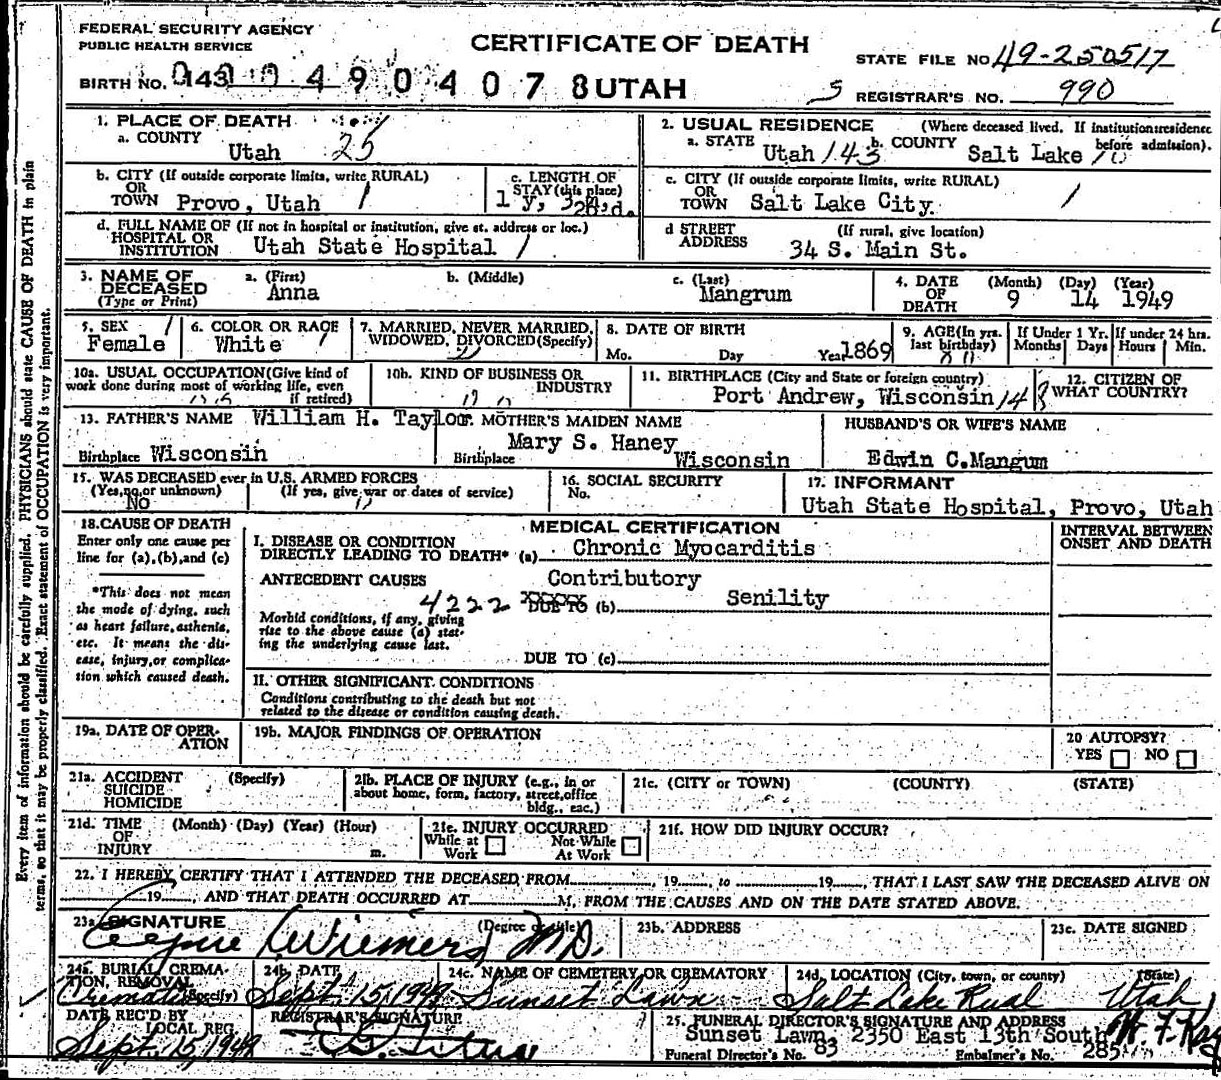 FEDERAL SECURITY AGENCY
PUBLIC HEALTH SERVICE
CERTIFICATE OF DEATH
STATE FILE NO. 49-250517
BIRTH NO. 143 490407 8 UTAH
5 REGISTRAR'S NO. 990
1. PLACE OF DEATH
a. COUNTY
Utah 25
2. USUAL RESIDENCE (Where deceased lived. If institution: residence before admission).
a. STATE Utah 143 b. COUNTY Salt Lake
b. CITY (If outside corporate limits, write RURAL)
OR
TOWN Provo, Utah 1
c. LENGTH OF
STAY (this place)
1 y,
c. CITY (If outside corporate limits, write RURAL)
OR
TOWN Salt Lake City. 1
d. FULL NAME OF (If not in hospital or institution, give st. address or loc.)
HOSPITAL OR
INSTITUTION Utah State Hospital
d STREET (If rural, give location)
ADDRESS 34 S. Main St.
3. NAME OF
DECEASED
(Type or Print)
a. (First)
Anna
b. (Middle)
c. (Last)
Mangrum
4. DATE
OF
DEATH
(Month) (Day) (Year)
9 14 1949
5. SEX 1
Female
6. COLOR OR RACE
White
7. MARRIED, NEVER MARRIED,
WIDOWED, DIVORCED (Specify)
8. DATE OF BIRTH
Mo. Day Year 1869
9. AGE (In yrs.
last birthday)
If Under 1 Yr.
Months Days
If under 24 hrs.
Hours Min.
10a. USUAL OCCUPATION (Give kind of
work done during most of working life, even
if retired)
10b. KIND OF BUSINESS OR
INDUSTRY
11. BIRTHPLACE (City and State or foreign country)
Port Andrew, Wisconsin
12. CITIZEN OF
WHAT COUNTRY?
13. FATHER'S NAME William H. Taylor
Birthplace Wisconsin
MOTHER'S MAIDEN NAME
Mary S. Haney
Birthplace Wisconsin
HUSBAND'S OR WIFE'S NAME
Edwin C. Mangum
15. WAS DECEASED ever in U.S. ARMED FORCES
(Yes, no, or unknown) (If yes, give war or dates of service)
No
16. SOCIAL SECURITY
No.
17. INFORMANT
Utah State Hospital, Provo, Utah
18. CAUSE OF DEATH
Enter only one cause per
line for (a), (b), and (c)
*This does not mean
the mode of dying, such
as heart failure, asthenia,
etc. It means the dis-
ease, injury, or complica-
tion which caused death.
MEDICAL CERTIFICATION
INTERVAL BETWEEN
ONSET AND DEATH
I. DISEASE OR CONDITION
DIRECTLY LEADING TO DEATH* (a) Chronic Myocarditis
ANTECEDENT CAUSES Contributory
4222 DUE TO (b) Senility
Morbid conditions, if any, giving
rise to the above cause (a) stat-
ing the underlying cause last.
DUE TO (c)
II. OTHER SIGNIFICANT CONDITIONS
Conditions contributing to the death but not
related to the disease or condition causing death.
19a. DATE OF OPER-
ATION
19b. MAJOR FINDINGS OF OPERATION
20 AUTOPSY?
YES NO
21a. ACCIDENT (Specify)
SUICIDE
HOMICIDE
21b. PLACE OF INJURY (e.g., in or
about home, form, factory, street, office
bldg., eac.)
21c. (CITY or TOWN) (COUNTY) (STATE)
21d. TIME (Month) (Day) (Year) (Hour)
OF
INJURY m.
21e. INJURY OCCURRED
While at
Work
Not While
At Work
21f. HOW DID INJURY OCCUR?
22. I HEREBY CERTIFY THAT I ATTENDED THE DECEASED FROM, 19, to 19, THAT I LAST SAW THE DECEASED ALIVE ON
19, AND THAT DEATH OCCURRED AT M, FROM THE CAUSES AND ON THE DATE STATED ABOVE.
23a. SIGNATURE (Degree or title)
Wiemers M.D.
23b. ADDRESS
23c. DATE SIGNED
24a. BURIAL, CREMA-
TION, REMOVAL
(Specify)
24b. DATE
Sept. 15, 1949
24c. NAME OF CEMETERY OR CREMATORY
Sunset Lawn
24d. LOCATION (City, town, or county) (State)
Salt Lake Rual Utah
DATE REC'D BY
LOCAL REG.
Sept. 15, 1949
REGISTRAR'S SIGNATURE
25. FUNERAL DIRECTOR'S SIGNATURE AND ADDRESS
Sunset Lawn, 2350 East 13th South
Funeral Director's No. 83 Embalmer's No. 285
Every item of information should be carefully supplied. PHYSICIANS should state CAUSE OF DEATH in plain
terms, so that it may be properly classified. Exact statement of OCCUPATION is very important.